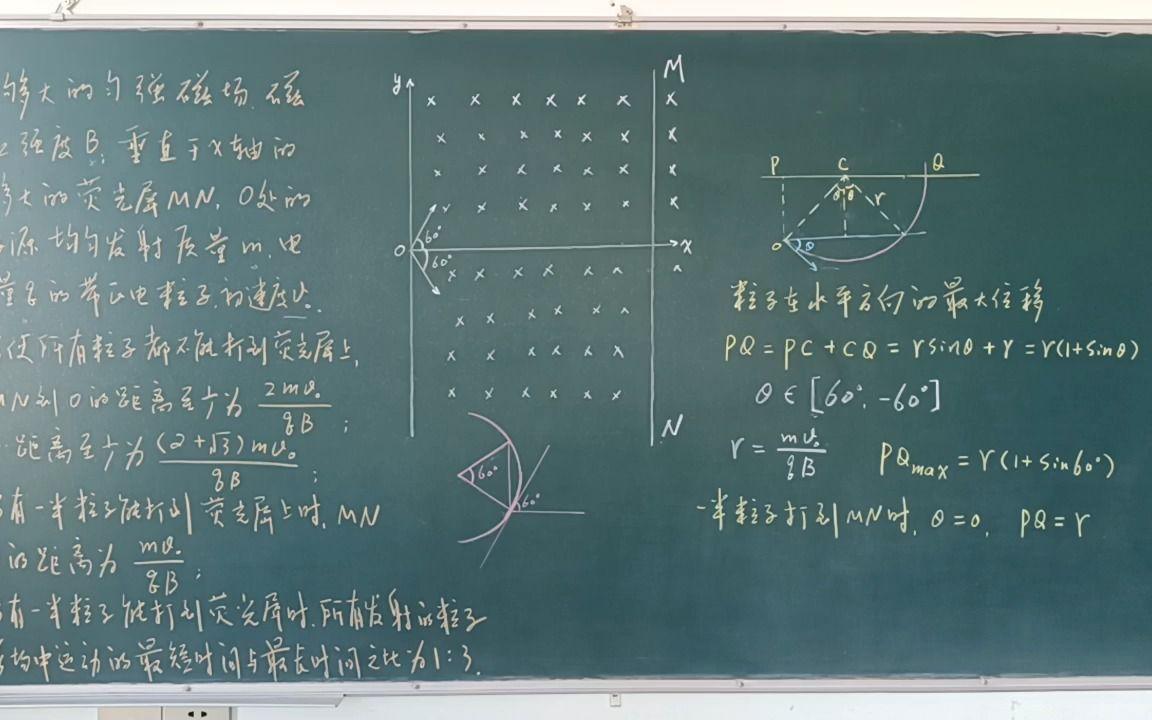 够大的匀强磁场.磁
强度B;垂直于x轴的
够大的荧光屏MN,O处的
源均匀发射质量m,电
量q的带正电粒子,初速度v₀.
使所有粒子都不能打到荧光屏上,
MN到O的距离至少为 2mv₀/qB ;
距离至少为 (2+√3)mv₀/qB ;
有一半粒子能打到荧光屏上时,MN
的距离为 mv₀/qB ;
有一半粒子能打到荧光屏时,所有发射的粒子
场中运动的最短时间与最长时间之比为1:3.
y
M
× × × × × × ×
× × × × × × ×
× × × × × × ×
× × × × × × ×
60°
O
x
60°
× × × × × ×
× × × × ×
× × × × × ×
× × × × × ×
N
60°
60°
P C Q
θ θ
r
O
θ
粒子在水平方向的最大位移
PQ = PC + CQ = rsinθ + r = r(1+sinθ)
θ ∈ [60°, -60°]
r = mv₀/qB
PQmax = r(1+sin60°)
一半粒子打到MN时, θ=0, PQ=r